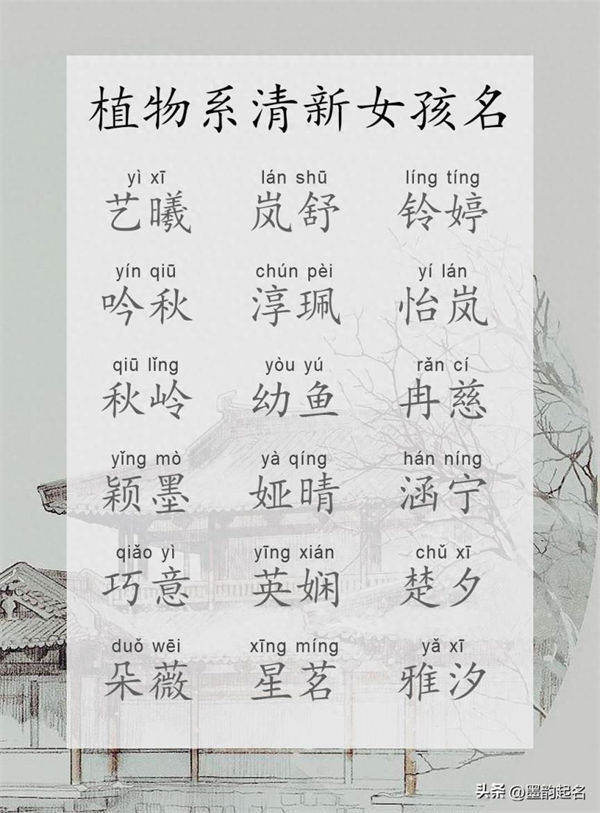 植物系清新女孩名
yì xī lán shū líng tíng
艺曦 岚舒 铃婷
yín qiū chún pèi yí lán
吟秋 淳珮 怡岚
qiū lǐng yòu yú rǎn cí
秋岭 幼鱼 冉慈
yǐng mò yà qíng hán níng
颖墨 娅晴 涵宁
qiǎo yì yīng xián chǔ xī
巧意 英娴 楚夕
duǒ wēi xīng míng yǎ xī
朵薇 星茗 雅汐
头条 @墨韵起名